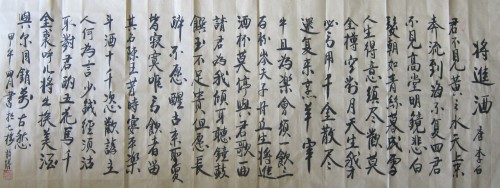 將進酒 唐 李白
君不見黃河之水天上來
奔流到海不復回君
不見高堂明鏡悲白
髮朝如青絲暮成雪
人生得意須盡歡莫
使金樽空對月天生我才
必有用千金散盡
還復來烹羊宰
牛且為樂會須一飲三
百杯岑夫子丹丘生將進
酒杯莫停與君歌一曲
請君為我傾耳聽鐘鼓
饌玉不足貴但愿長
醉不愿醒古來聖賢
皆寂寞唯有飲者留
其名陳王昔時宴平樂
斗酒十千恣歡謔主
人何為言少錢徑須沽
取對君酌五花馬千
金裘呼兒將出換美酒
與尔同銷萬古愁